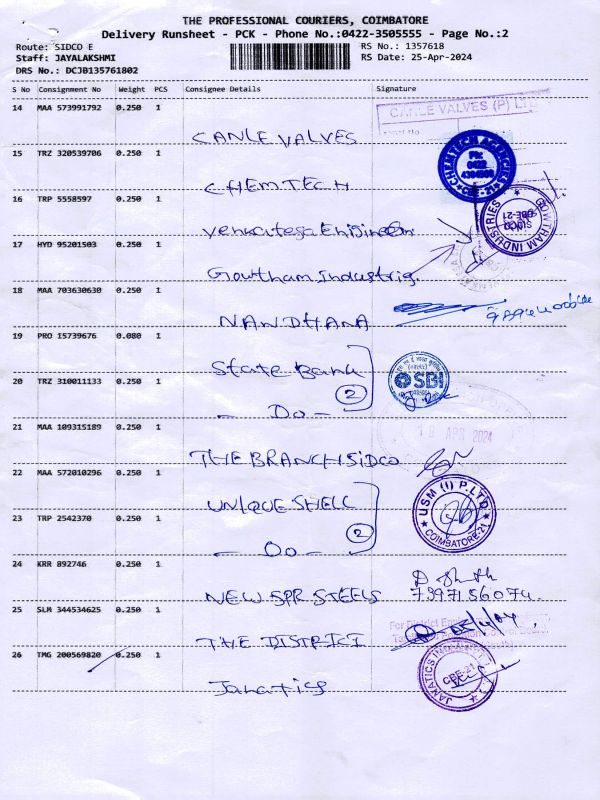 THE PROFESSIONAL COURIERS, COIMBATORE
Delivery Runsheet - PCK - Phone No.:0422-3505555 - Page No.:2
Route: SIDCO E
RS No.: 1357618
Staff: JAYALAKSHMI
RS Date: 25-Apr-2024
DRS No.: DCJB135761802
S No Consignment No Weight PCS Consignee Details Signature
14 MAA 573991792 0.250 1 CANLE VALVES
CANLE VALVES (P) LTD
15 TRZ 320539706 0.250 1 CHEMTECH
CHEMTECH AGENCIES
Ph:
0422
CBE-21
16 TRP 5558597 0.250 1 Venkatesa Engineeri
17 HYD 95201503 0.250 1 Goutham Industris.
GOWTHAM INDUSTRIES
SIDCO
CBE-21
18 MAA 703630630 0.250 1 NANDHANA
19 PRO 15739676 0.080 1 State Bank
SBI
20 TRZ 310011133 0.250 1 - Do - 2
21 MAA 109315189 0.250 1 THE BRANCH SIDCO
APR 2024
22 MAA 572010296 0.250 1 UNIQUE SHELL
USM (I) P.LTD
COIMBATORE-21
23 TRP 2542370 0.250 1 - Do - 2
24 KRR 892746 0.250 1 NEW SPR STEELS
7397156074.
25 SLM 344534625 0.250 1 THE DISTRICT
26 TMG 200569820 0.250 1 Janatics
JANATICS
CBE-21